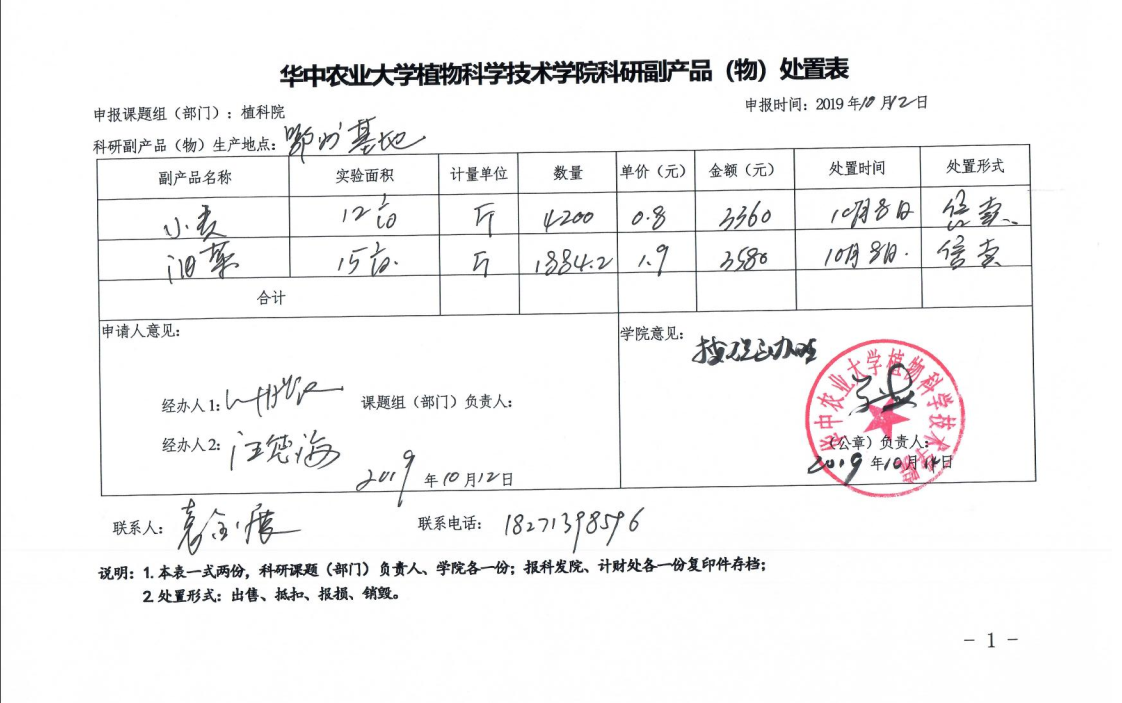 华中农业大学植物科学技术学院科研副产品（物）处置表
申报课题组（部门）：植科院
申报时间：2019 年10 月12日
科研副产品（物）生产地点：鄂州基地
副产品名称 实验面积 计量单位 数量 单价（元） 金额（元） 处置时间 处置形式
小麦 12亩 斤 4200 0.8 3360 10月8日
油菜 15亩. 斤 1884.2 1.9 3580 10月8日.
合计
申请人意见：
学院意见：
经办人1：
课题组（部门）负责人：
经办人2：汪德海
2019 年10月12日
（公章）负责人：
2019 年10月12日
华中农业大学植物科学技术学院
联系人：袁金展
联系电话：18271398596
说明：1.本表一式两份，科研课题（部门）负责人、学院各一份；报科发院、计财处各一份复印件存档；
2.处置形式：出售、抵扣、报损、销毁。
- 1 -